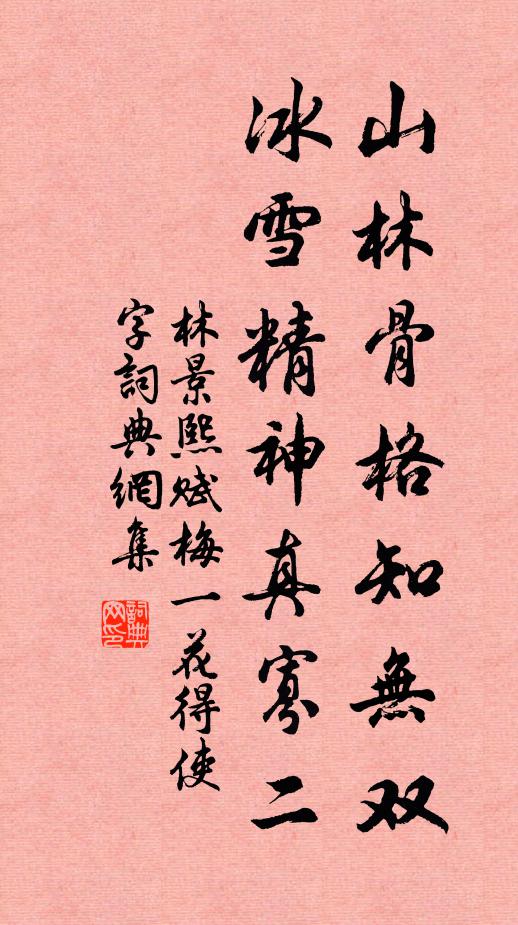 山林骨格知無双
冰雪精神真寡二
林景熙賦梅一花得使
字詞典網集
詞典网印